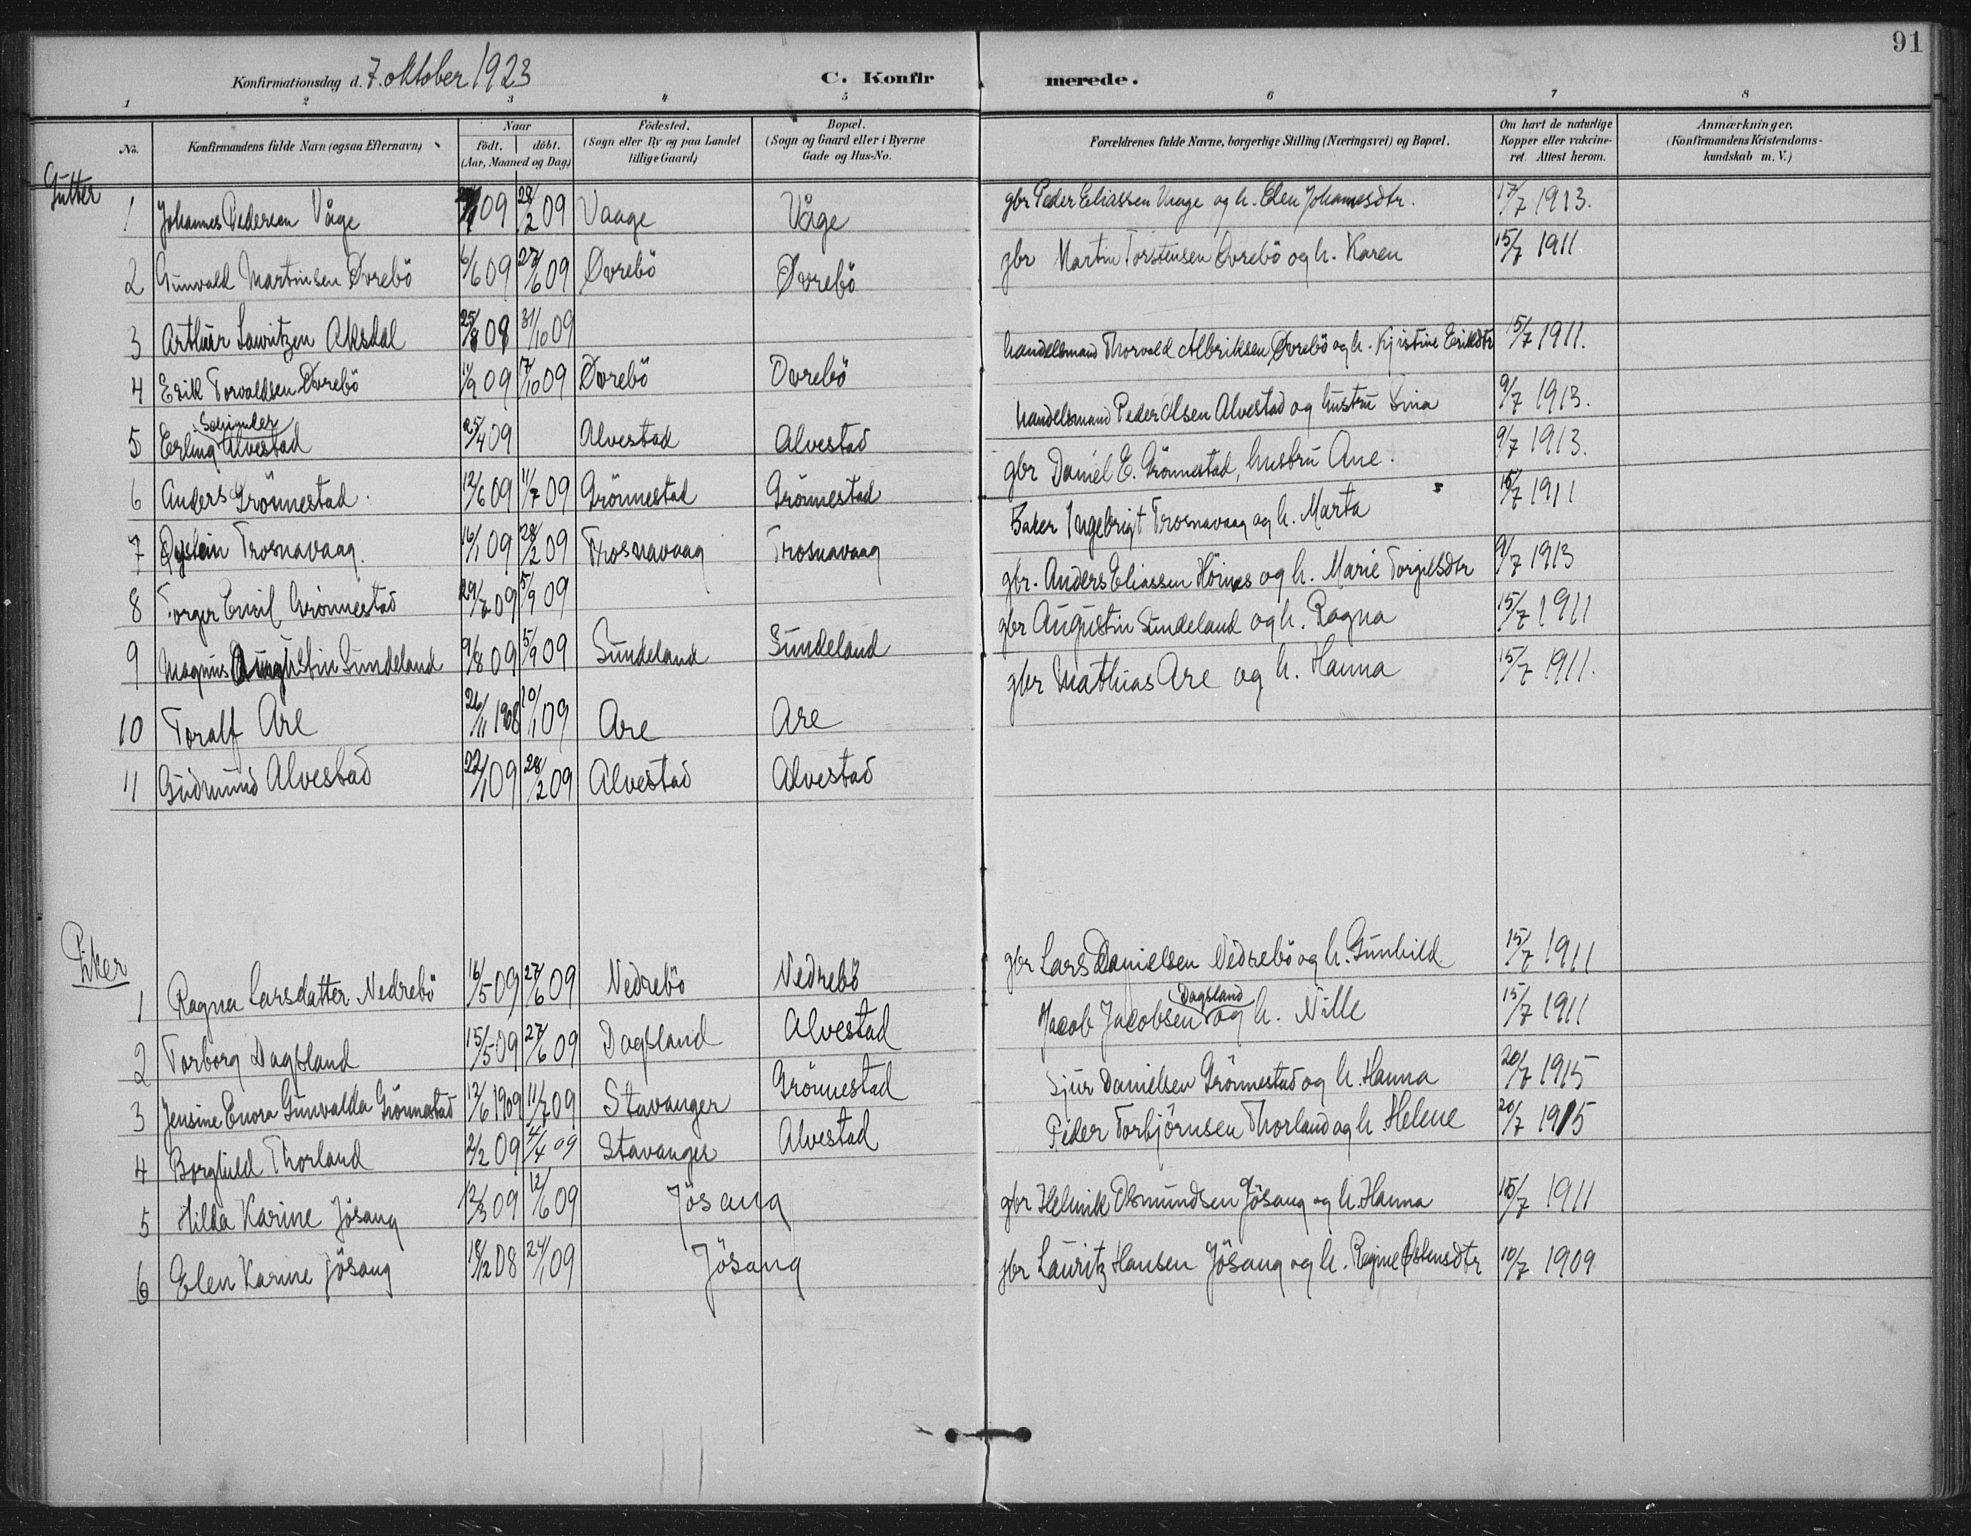 91
Konfirmationsdag d. 7. oktober 1923 C. Konfir merede.
1 2 3 4 5 6 7 8
No. Konfirmandens fulde Navn (ogsaa Efternavn) Naar født. døbt. (Aar, Maaned og Dag) Födested. (Sogn eller By og paa Landet tillige Gaard) Bopæl. (Sogn og Gaard eller i Byerne Gade og Hus-No. Forældrenes fulde Navne, borgerlige Stilling (Næringsvei) og Bopæl. Om havt de naturlige Kopper eller vakcineret. Attest herom. Anmærkninger. (Konfirmandens Kristendomskundskab m. V.)
Gutter
1 Johannes Pedersen Våge 09 28/2 09 Vaage Våge gbr Peder Eliassen Vaage og h. Elen Johannesdtr. 17/7 1913.
2 Gunvald Martinsen Øvrebö 6/6 09 27/6 09 Øvrebö Øvrebö gbr Martin Torstensen Øvrebö og h. Karen 15/7 1911
3 Arthur Lauritzen Aksdal 25/8 09 31/10 09
4 Erik Torvaldsen Øvrebö 11/9 09 7/10 09 Øvrebö Ovrebö handelsmand Thorvald Albriksen Øvrebö og h. Kjistine Eriksdtr 15/7 1911.
5 Erling Alvestad 25/4 09 Alvestad Alvestad handelsmand Peder Olsen Alvestad og hustru Sina 9/7 1913.
6 Anders Grönnestad. 12/6 09 11/7 09 Grönnestad Grönnestad gbr Daniel E. Grönnestad, husbru Ane. 9/7 1913.
7 Øystein Trosnavaag. 16/1 09 28/2 09 Trosnavaag Trosnavaag Baker Ingebrigt Trosnavaag og h. Marta 15/7 1911
8 Torger Emil Grönnestad 29/7 09 5/9 09 gbr. Anders Eliassen Höines og h. Marie Torgilsdtr 9/7 1913
9 Magnus Augustin Sundeland 9/8 09 5/9 09 Sundeland Sundeland gbr Augustin Sundeland og h. Ragna 15/7 1911
10 Toralf Are 26/11 1908 10/1 09 Are Are gbr Mathias Are og h. Hanna 15/7 1911.
11 Gudmund Alvestad 22/1 09 28/2 09 Alvestad Alvestad
Piker
1 Ragna Larsdatter Nedrebö 16/5 09 27/6 09 Nedrebö Nedrebö gbr Lars Danielsen Nedrebö og h. Gunhild. 15/7 1911
2 Torborg Dagsland 15/5 09 27/6 09 Dagsland Alvestad Jacob Jacobsen Dagsland og h. Nille 15/7 1911
3 Jensine Enora Gunvalda Grönnestad 12/6 1909 11/7 09 Stavanger Grönnestad Sjur Danielsen Grönnestad og h. Hanna 20/7 1915
4 Borghild Thorland 2/2 09 4/4 09 Stavanger Alvestad Peder Torbjörnsen Thorland og h Helene 20/7 1915
5 Hilda Karine Jösang 12/3 09 12/6 09 Jösang gbr Helmik Osmundsen Jösang og h. Hanna 15/7 1911
6 Elen Karine Jösang 18/12 08 24/1 09 Jösang gbr Lauritz Hansen Jösang og h. Regine Østensdtr 10/7 1909